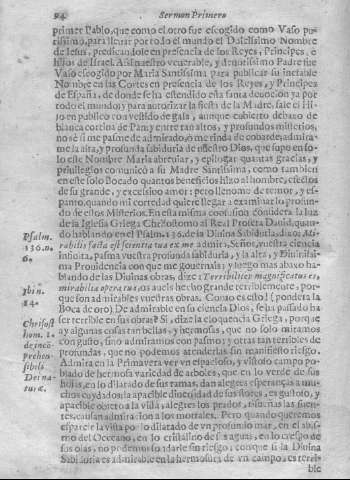 94 Sermon Primero
primer Pablo, que como el otro fue escogido como Vaso pu-
rissimo, para llevar por todo el mundo el Dulcissimo Nombre
de Iesus, predicandole en presencia de los Reyes, Principes, è
hijos de Israel. Assi nuestro venerable, y devotissimo Padre fue
Vaso escogido por Maria Santissima para publicar su inefable
Nombre en las Cortes en presencia de los Reyes, y Principes
de España, de donde se ha estendido esta santa devocion ya por
todo el mundo; y para autorizar la fiesta de la Madre, sale el Hi-
jo en publico con vestido de gala, aunque cubierto debaxo de
blanca cortina de Pan; y entre tan altos, y profundos misterios,
no sè si me pasme de admirado, ò me rinda de cobarde; admira-
me la alta, y profunda sabiduria de nuestro Dios, que supo en so-
lo este Nombre Maria abreviar, y epilogar quantas gracias, y
privilegios comunicò a su Madre Santissima, como tambien
en este solo Bocado quantos beneficios hizo al hombre, efectos
de su grande, y excessivo amor: pero llenome de temor, y es-
panto, quando mi cortedad quiere llegar a examinar lo profun-
do de estos Misterios. En esta misma confusion considera la luz
de la Iglesia Griega Chrisostomo al Real Profeta David, quan-
do hablando en el Psalm. 136. de la Divina Sabiduria dixo: Mi-
rabilis facta est scientia tua ex me admiro, Señor, vuestra ciencia
infinita, pasma vuestra profunda sabiduria, y la alta, y Divinissi-
ma Providencia con que me governais; y luego mas abaxo ha-
blando de las Divinas obras, dize: Terribiliter magnificatus es,
mirabilia opera tua, os aveis hecho grande terriblemente, por-
que son admirables vuestras obras. Como es esto? (pondera la
Boca de oro) De admirable en su ciencia Dios, se ha passado ha
ser terrible en sus obras? Si, dize la eloquencia Griega, porque
ay algunas cosas tan bellas, y hermosas, que no solo miramos
con gusto, sino admiramos con pasmo; y otras tan terribles de
profundas, que no podemos atenderlas sin manifiesto riesgo.
Admira en la Primavera ver un espacioso, y vistoso campo po-
blado de hermosa variedad de arboles, que en lo verde de sus
hojas, en lo dilatado de sus ramas, dan alegres esperanças a mu-
chos cuydados: la apacible diversidad de sus flores, es gustoso, y
apacible objeto a la vista, alegres los prados, risueñas las fuen-
tes, causan admiracion a los mortales. Pero quando queremos
esparcir la vista por lo dilatado de un profundo mar, en el abis-
mo del Occeano, en lo cristalino de sus aguas, en lo crespo de
sus olas, no podemos mirarle sin riesgo; conque si la Divina
Sabiduria es admirable en la hermosura de un campo; es terri-
ble
Psalm.
136. v.
6.
Ibi v.
14.
Chrisost
hom. 1.
de incõ-
prehen-
sibili
Dei na-
tura.